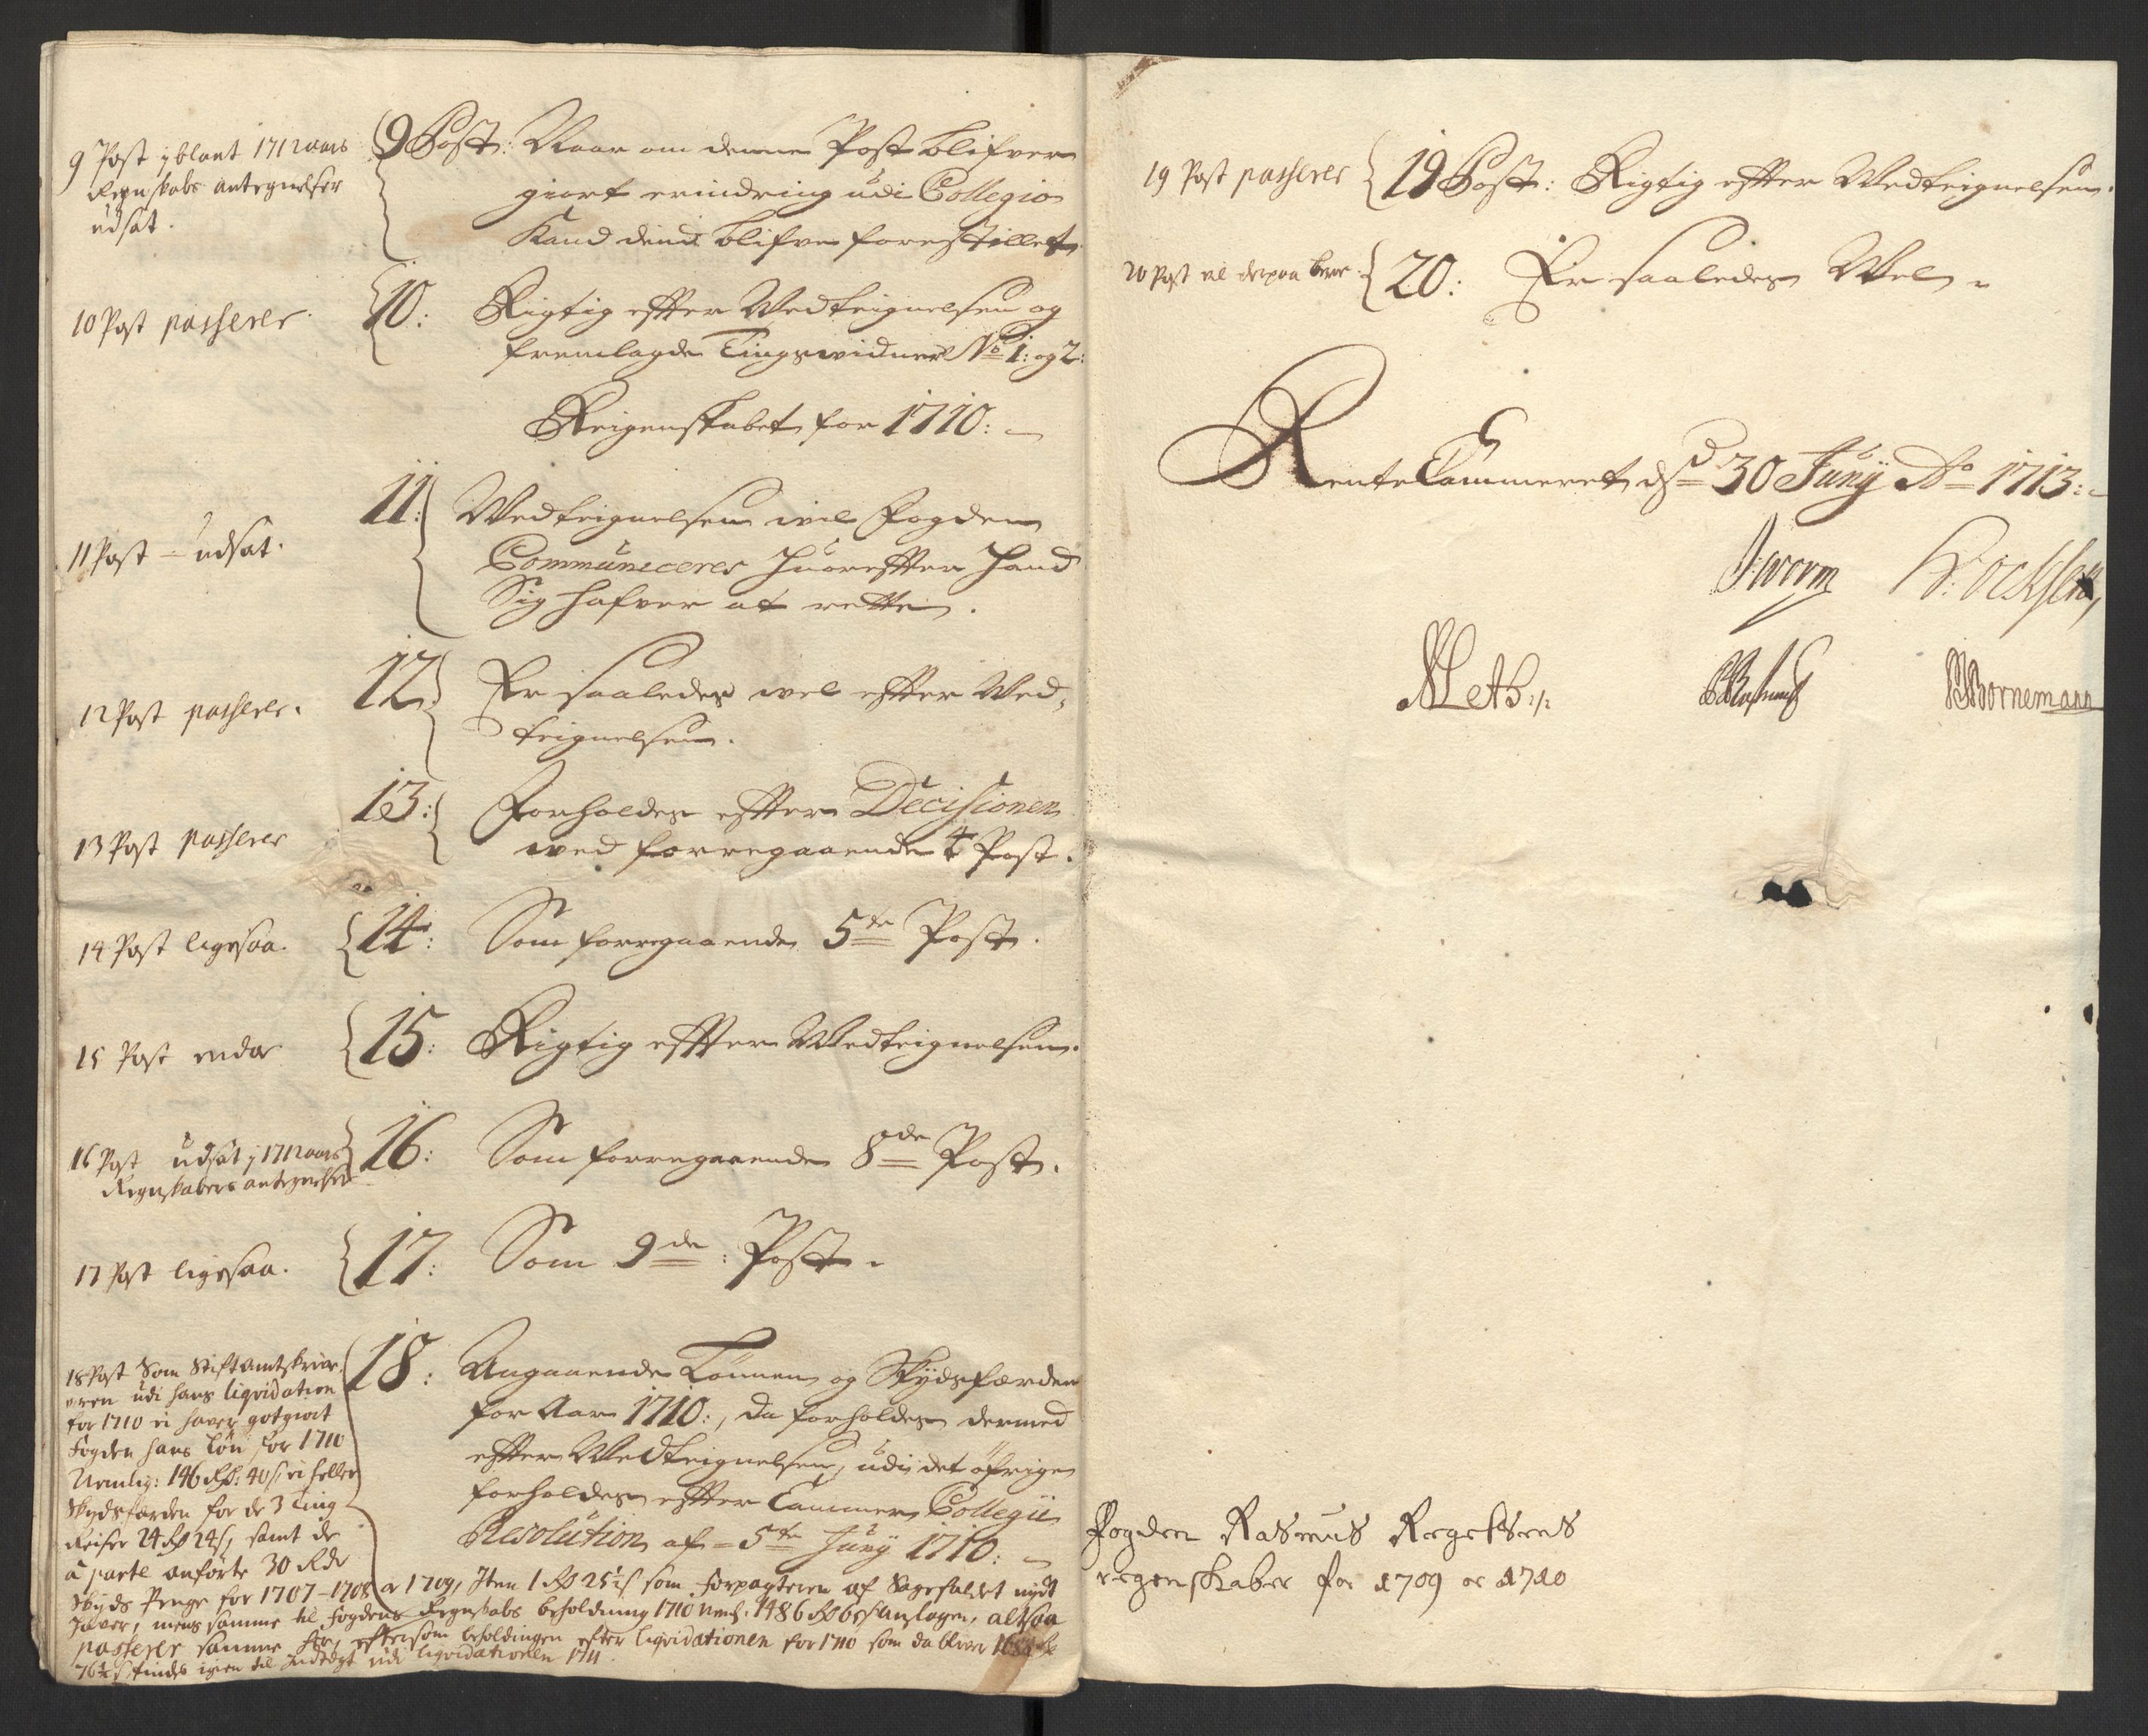 9 Post iblant 1712 aars
Regnskabs antegnelser
udsat.
9 Post: Naar om denne Post blifver
giort erindring udi Collegio
Kand dend blifve forestillet.
10 Post passerer.
10: Rigtig efter Wedteignelsen og
fremlagde Tingswidner No 1: og 2:
Reigenskabet for 1710:
11 Post - udsat.
11: Wedteignelsen wil Fogden
Communiceres huorefter hand
Sig hafver at rette.
12 Post passerer.
12 Er saaledes wel efter Wed-
teignelsen.
13 Post passerer
13: Forholdes efter Decisionen
wed forregaaende 4 Post.
14 Post ligesaa.
14: Som forregaaende 5te Post.
15 Post
15: Rigtig efter Wedteignelsen.
16 Post udsat i 1712 aars
Regnskabers antegnelser
16: Som forregaaende 8de Post.
17 Post ligesaa.
17: Som 9de: Post.
18 Post Som Stiftamtskriv-
eren udi hans liqvidation
for 1710 ei haver gotgiort
Fogden hans Løn for 1710
Nemlig: 146 Rd: 40 s ei heller
Skydsfærden for de 3 Ting
Reiser 24 Rd 24 s, samt de
a parte anførte 30 Rdr
Skyds Penge for 1707-1708 a 1709, Iten 1 Rd 25½ s som forpagteren af Sagefaldet nydt
haver, mens samme til Fogdens Regnskabs beholdning 1710 Neml: 1486 Rd anslagen, altsaa
passerer samme her, eftersom beholdningen efter liqvidationen for 1710 som da blever
76½ s findes igien til Indtegt udi liqvidationen 1711.
18: Angaaende Lønnen og Skydsfærden
for Aar 1710:, da forholdes dermed
efter Wedteignelsen, udi det öfrige
forholdes efter Cammer Collegii
Resolution af - 5te Juny 1710:
19 Post passerer
19 Post: Rigtig efter Wedteignelsen.
20 Post
20: Er saaledes Wel.
Rente Cammeret d 30 Juny Ao 1713:
J: Worm
Bornemann
Fogden Rasmus
regenskaber for 1709 oc 1710